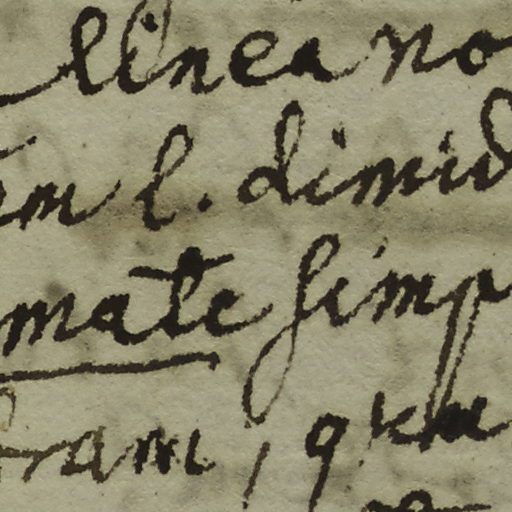 linea no
em l. dimid
mate simp
fram, q